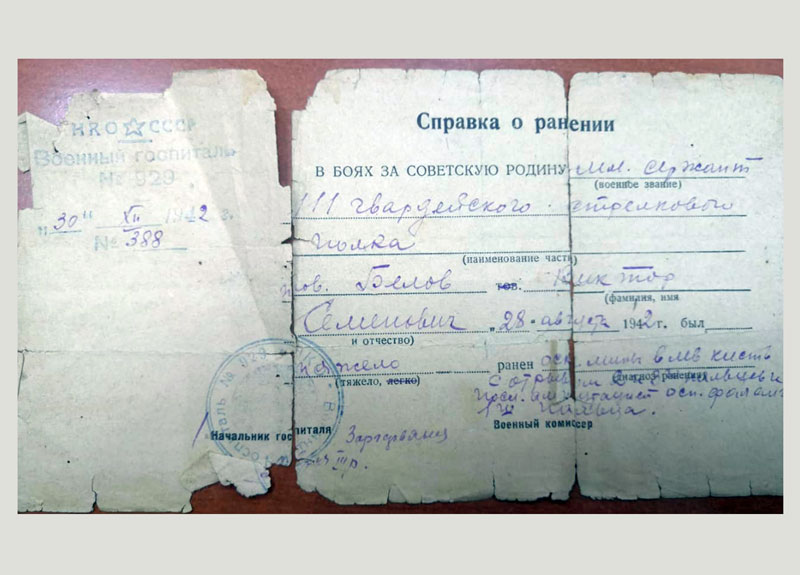 НКО ☆ СССР
Военный госпиталь
№ 929
„30“ XII 1942 г.
№ 388
Справка о ранении
В БОЯХ ЗА СОВЕТСКУЮ РОДИНУ мл. сержант
(военное звание)
111 гвардейского стрелкового
полка
(наименование части)
тов. Белов тов. Виктор
(фамилия, имя
Семенович „28“ августа 1942 г. был
и отчество)
тяжело ранен оск. мины в лев кисть
(тяжело, легко) (диагноз ранения)
с отрывом пальцев и
оск. фаланг
пальца.
Начальник госпиталя Военный комиссер